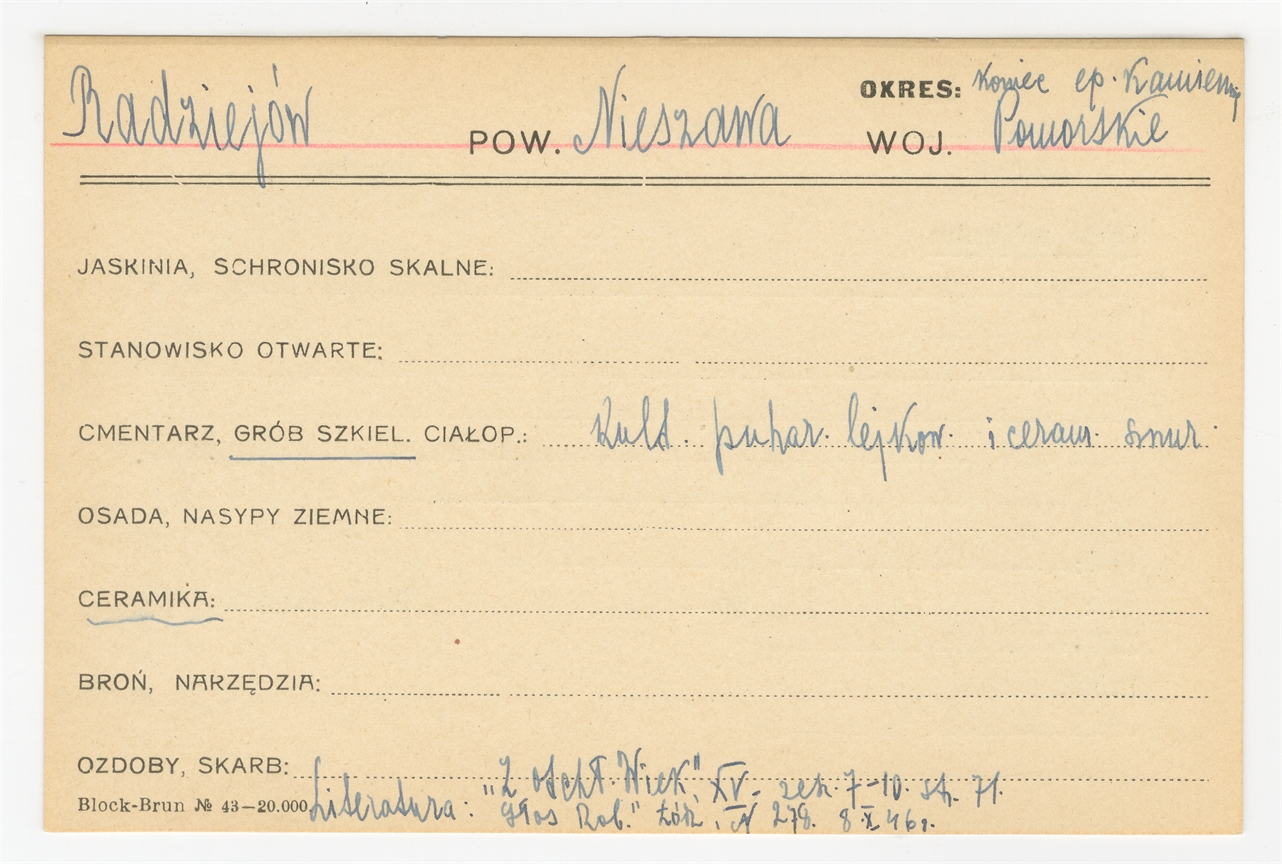 Radziejów POW. Nieszawa OKRES: Koniec ep. Kamiennej
WOJ. Pomorskie
JASKINIA, SCHRONISKO SKALNE:
STANOWISKO OTWARTE:
CMENTARZ, GRÓB SZKIEL. CIAŁOP.: Kult. puhar. lejkow. i ceram. sznur.
OSADA, NASYPY ZIEMNE:
CERAMIKA:
BROŃ, NARZĘDZIA:
OZDOBY, SKARB:
Literatura: "Z otchł. Wiek", XV. zesz. 7-10. st. 71.
Block-Brun № 43—20.000 "Głos Rob." Łódź, N 278. 8.X.46 r.